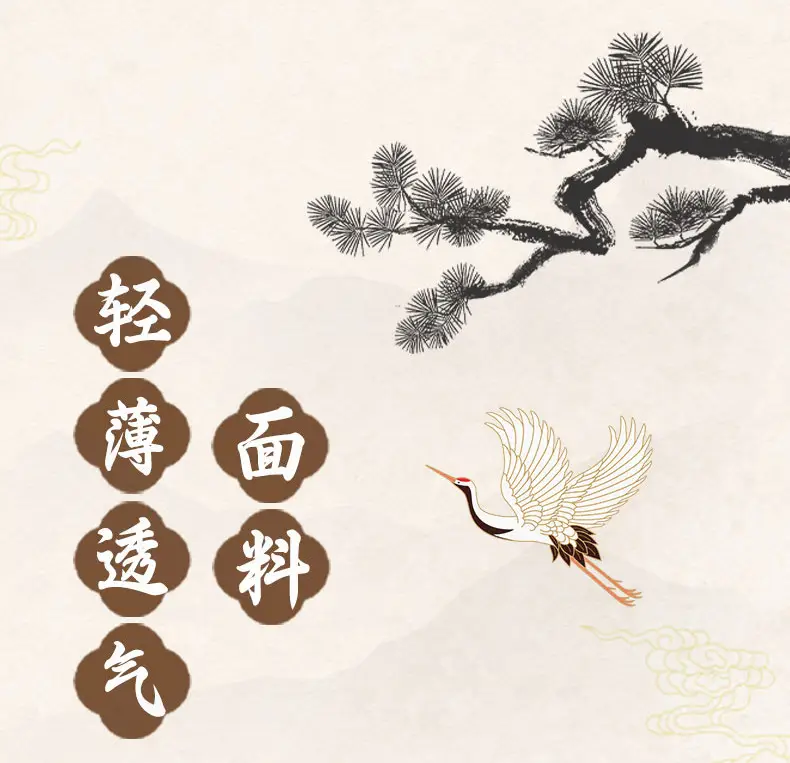 轻薄透气
面料